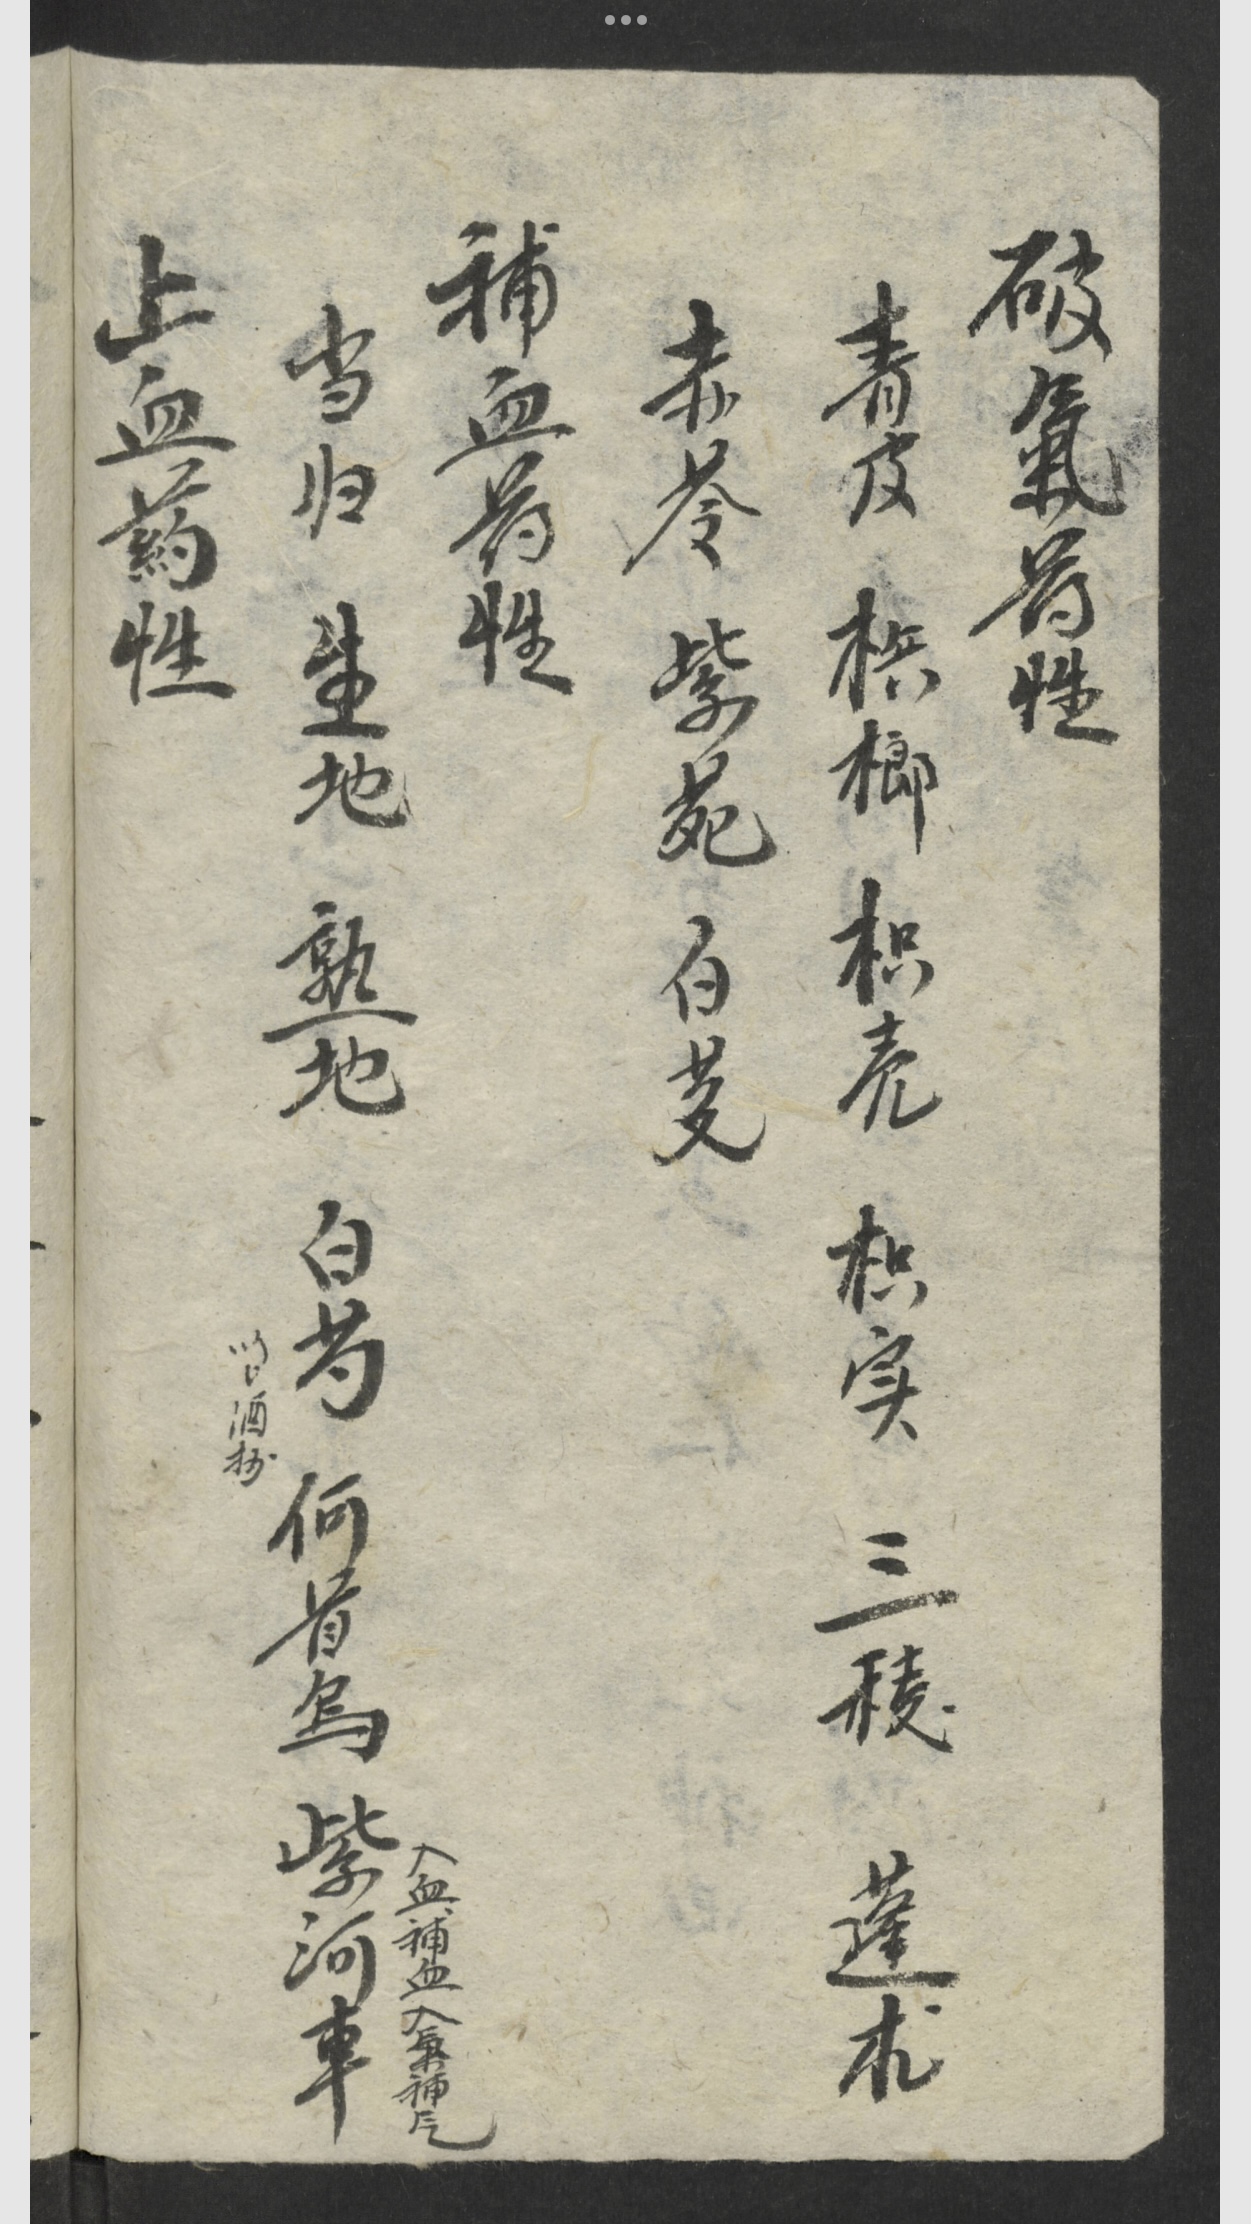 破氣药性
青皮 槟榔 枳壳 枳实 三稜 蓬朮
赤苓 紫苑 白芨
補血药性
当归 生地 熟地 白芍 何首烏 紫河車
入血補血入氣補气
酒炒
止血药性